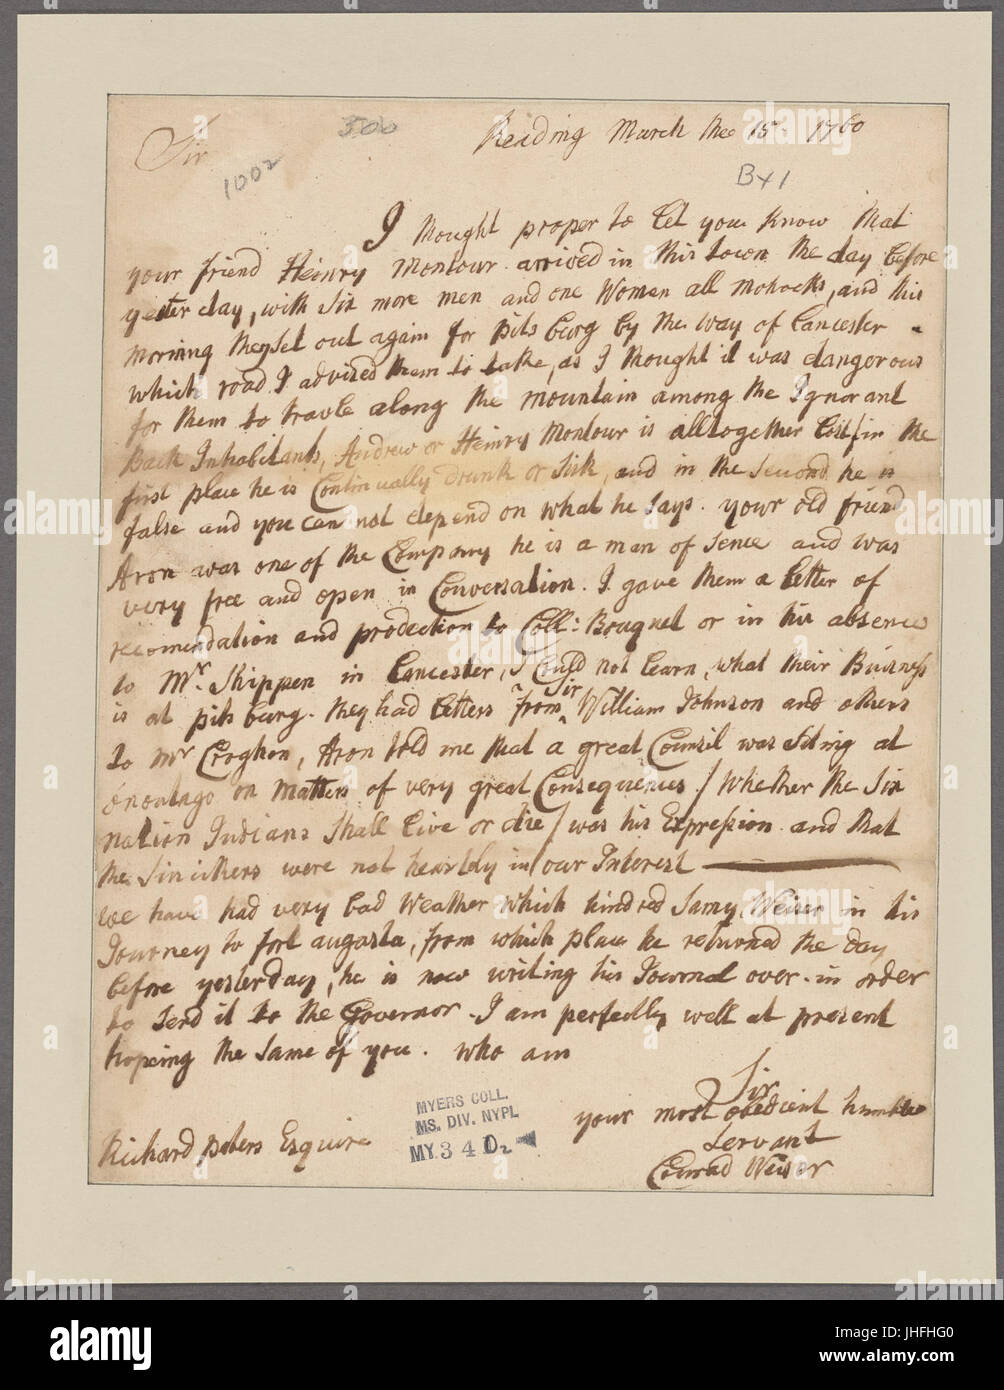 Reading March the 15 1760
Sir
306
1002
B41
I thought proper to let you know that
your friend Heinry Montour arrived in this town the day before
yester day, with Six more men and one Woman all mohocks, and this
morning they set out again for pits burg by the way of Lancester
which road I advised them to take, as I thought it was dangerous
for them to travle along the mountain among the Ignorant
Back Inhabitants, Andrew or Heinry Montour is alltogether lost / in the
first place he is Continually Drunk or Sik, and in the Second he is
false and you can not depend on what he Says. your old friend
Aron was one of the Company he is a man of Sence and was
very free and open in Conversation. I gave them a letter of
recomendation and protection to Coll: Bouquet or in his absence
to Mr. Shippen in Lancester, I Could not learn, what their Buisness
is at pitsburg. they had letters from ^ Sir William Johnson and others
to Mr Croghon, Aron told me that a great Council was Siting at
Onontago on Matters of very great Consequences / Whether the Six
nation Indians Shall live or die / was his Expression and that
the Sinickers were not heartely in our Interest
We have had very bad Weather which hindred Samy Weiser in his
Journey to fort augusta, from which place he returned the day
before yesterday, he is now writing his Journal over in order
to Send it to the Governor. I am perfectly well at present
hoping the Same of you. who am
Sir
your most obedient humble
Servant
Conrad Weiser
Richard peters Esquire
MYERS COLL.
MS. DIV. NYPL
MY 34 D2
alamy
a
alamy
Image ID: JHFHG0
www.alamy.com